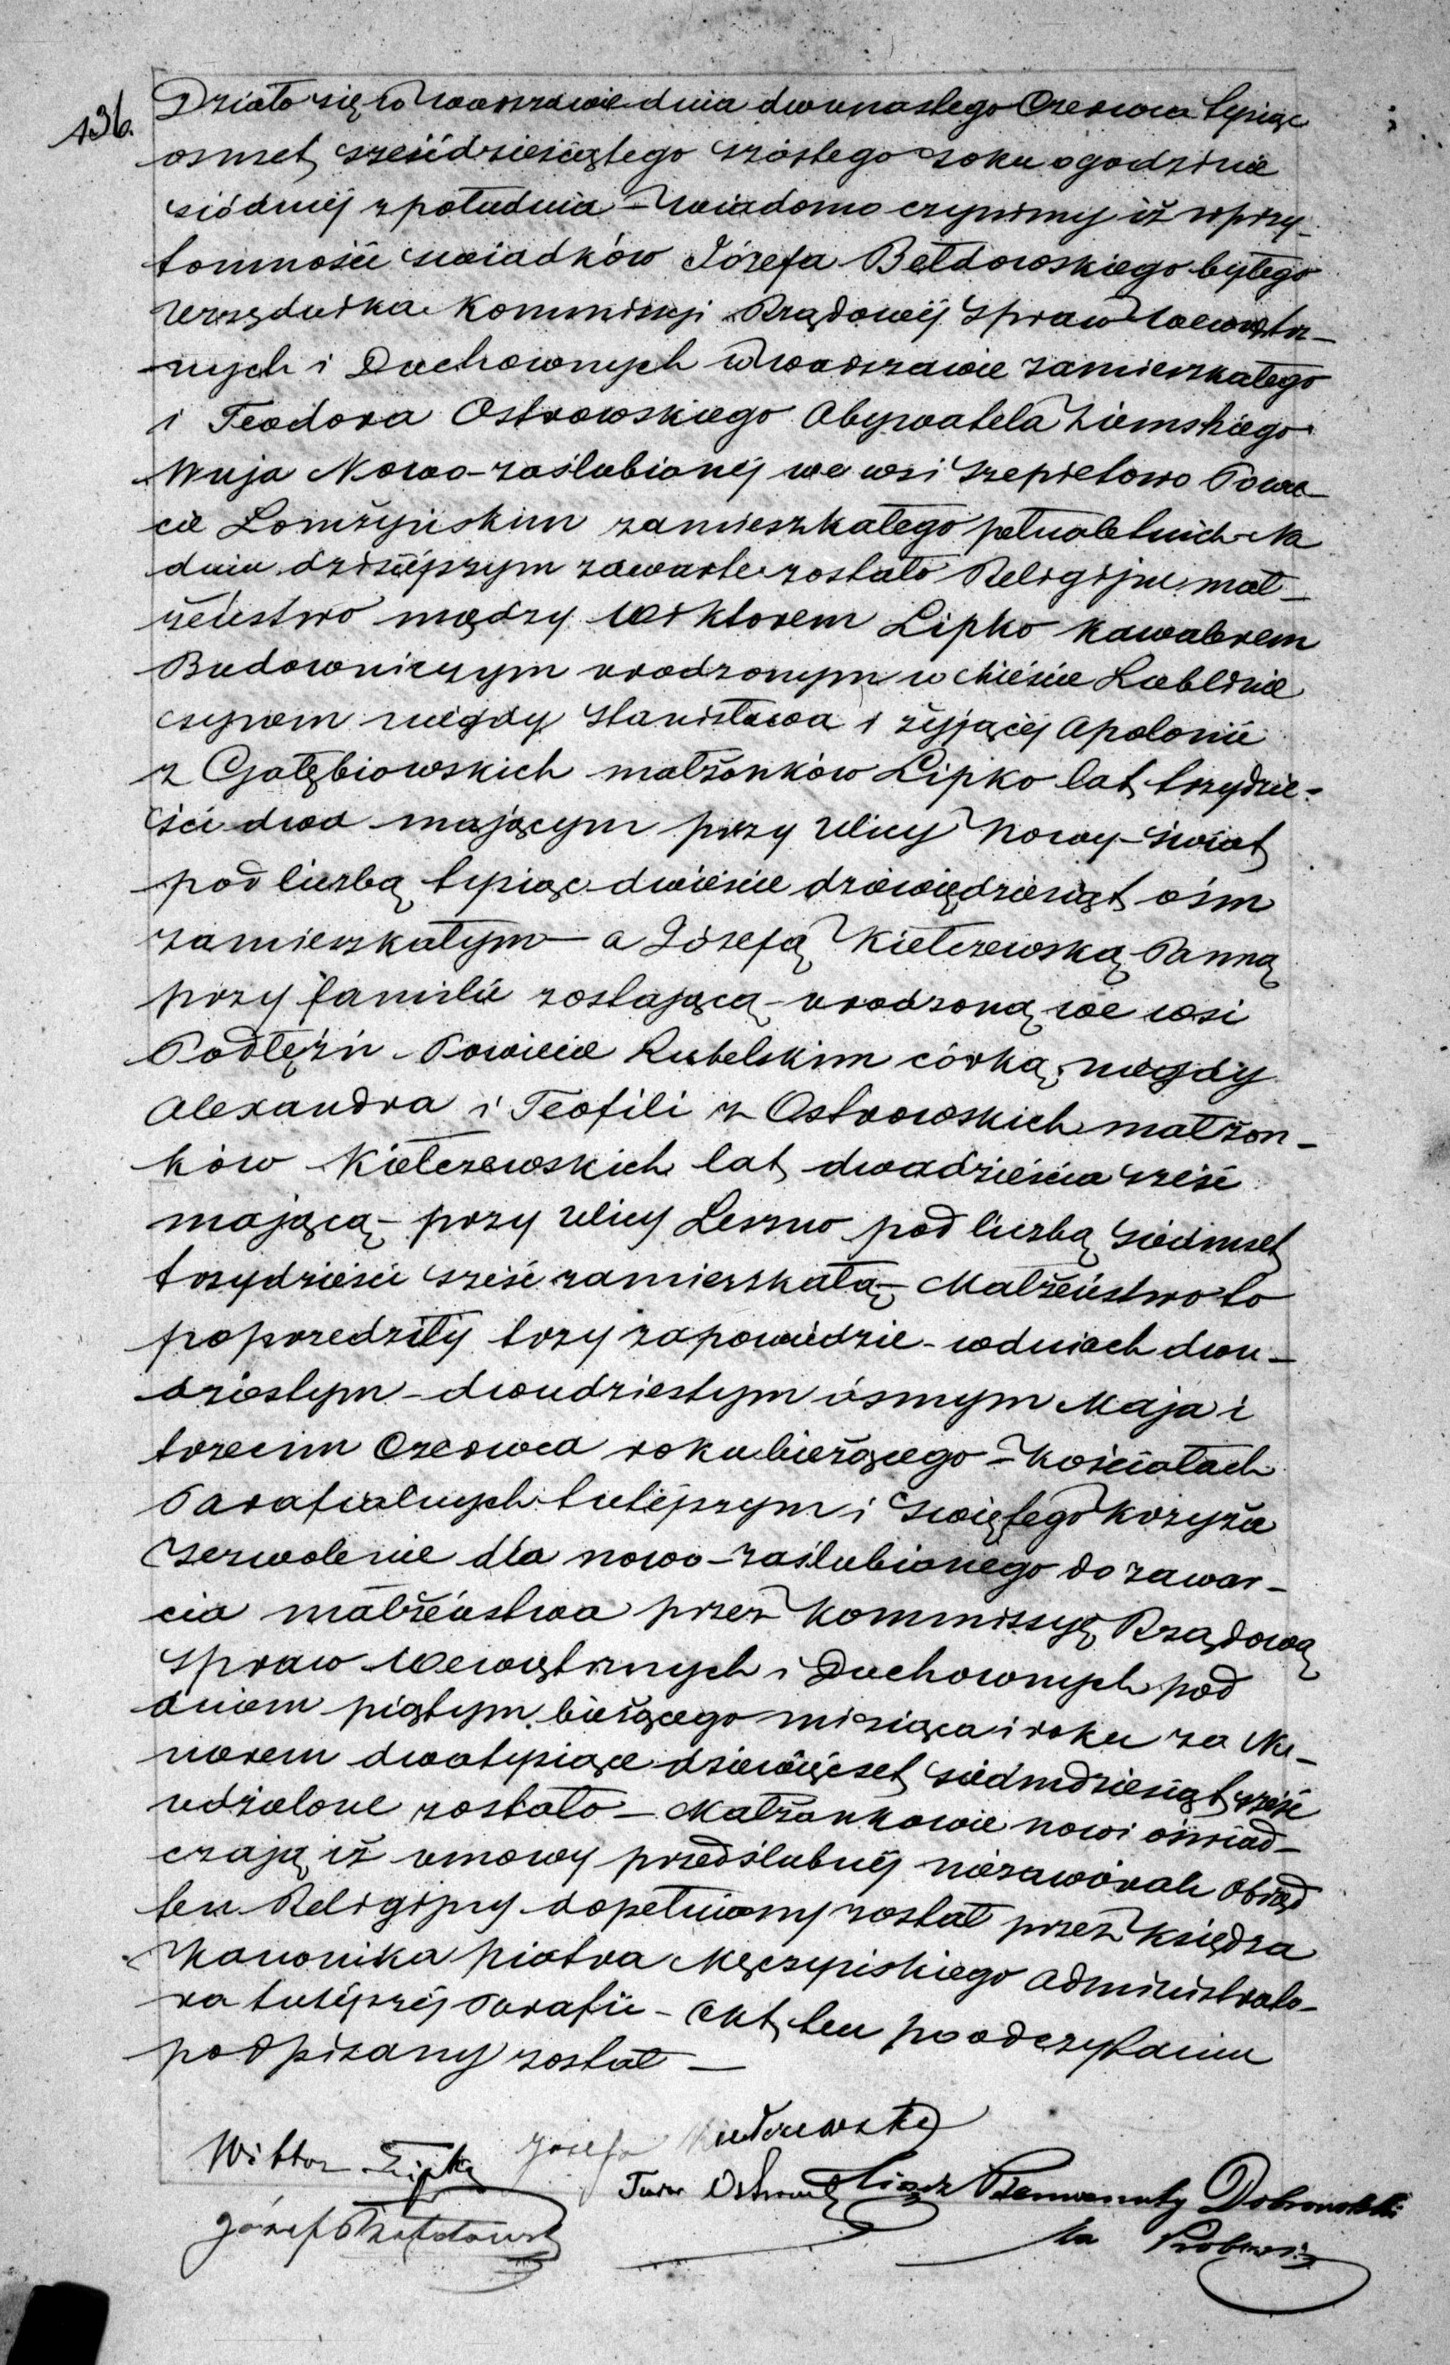 136.
Działo się w Warszawie dnia dwunastego Czerwca tysiąc
osmset sześćdziesiątego szóstego roku o godzinie
siódméj z południa – Wiadomo czynimy iż w przy-
tomności świadków Józefa Bełdowskiego byłego
Urzędnika Kommissyi Rządowéj Spraw Wewnętrz-
nych i Duchownych w Warszawie zamieszkałego
i Teodora Ostrowskiego Obywatela Ziemskiego
Wuja Nowo-zaślubionéj we wsi Szepietowo Powie-
cie Łomżyńskim zamieszkałego pełnoletnich Na
dniu dzisiéjszym zawarte zostało Religijne mał-
żeństwo między Wiktorem Lipko kawalerem
Budowniczym urodzonym w Mieście Lublinie
synem niegdy Stanisława i żyjącéj Apolonii
z Gołębiowskich małżonków Lipko lat trzydzie-
ści dwa mającym przy Ulicy Nowy-Świat
pod liczbą tysiąc dwieście dziewięćdziesiąt ośm
zamieszkałym – a Józefą Kiełczewską Panną
przy familii zostającą – urodzoną we wsi
Podlężu Powiecie Lubelskim córką niegdy
Alexandra i Teofili z Ostrowskich małżon-
ków Kiełczewskich lat dwadzieścia sześć
mającą – przy Ulicy Leszno pod liczbą siedmset
trzydzieści sześć zamieszkałą – Małżeństwo to
poprzedziły trzy zapowiedzie – w dniach dwu-
dziestym – dwudziestym ósmym Maja i
trzecim Czerwca roku bieżącego – w Kościołach
Parafialnych tutéjszym i Świętego Krzyża
Zezwolenie dla nowo-zaślubionego do zawar-
cia małżeństwa przez Kommissyę Rządową
Spraw Wewnętrznych i Duchownych pod
dniem piątym bieżącego miesiąca i roku za Nu-
merem dwa tysiące dziewięćset siedmdziesiąt sześć
udzielone zostało – Małżonkowie nowi oświad-
czają iż umowy przedślubnéj niezawarali Obrząd
ten Religijny dopełniony został przez Księdza
Kanonika Piotra Męczyńskiego Administrato-
ra tutéjszéj Parafii – Akt ten po odczytaniu
podpisany został –
Wiktor Lipko Józefa Kiełczewska
Teodor Ostrowski Xiądz Benwenuty Dobrowolski
Józef Bełdowski za Proboszcza